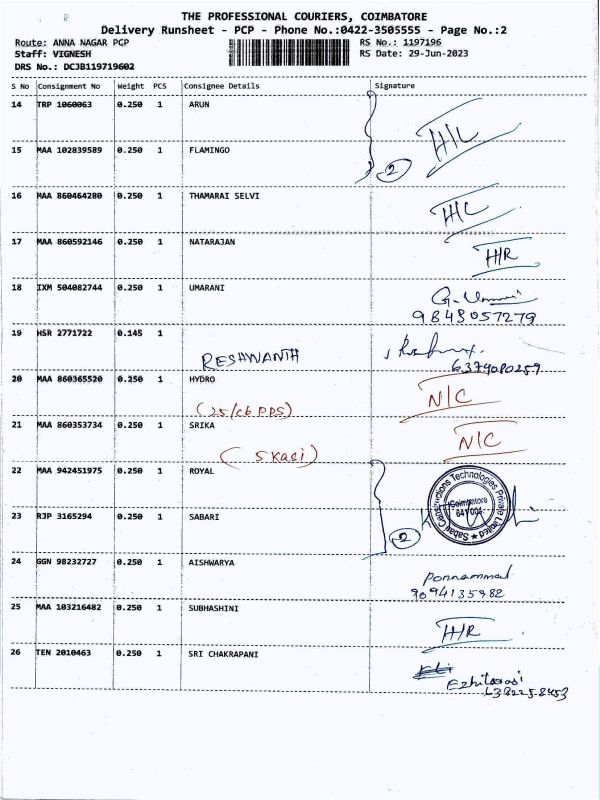 THE PROFESSIONAL COURIERS, COIMBATORE
Delivery Runsheet - PCP - Phone No.:0422-3505555 - Page No.:2
Route: ANNA NAGAR PCP RS No.: 1197196
Staff: VIGNESH RS Date: 29-Jun-2023
DRS No.: DCJB119719602
S No Consignment No Weight PCS Consignee Details Signature
14 TRP 1060063 0.250 1 ARUN H/C
15 MAA 102839589 0.250 1 FLAMINGO 2
16 MAA 860464280 0.250 1 THAMARAI SELVI H/C
17 MAA 860592146 0.250 1 NATARAJAN H/R
18 IXM 504082744 0.250 1 UMARANI G.
9843057279
19 HSR 2771722 0.145 1
RESHWANTH 6374080259
20 MAA 860365520 0.250 1 HYDRO N/C
(25/cb PPS)
21 MAA 860353734 0.250 1 SRIKA N/C
(SKasi)
22 MAA 942451975 0.250 1 ROYAL
Sabari Constructions Technologies Private Limited
Coimbatore
641 004
23 RJP 3165294 0.250 1 SABARI 2
24 GGN 98232727 0.250 1 AISHWARYA Ponnammal
9094135982
25 MAA 103216482 0.250 1 SUBHASHINI H/R
26 TEN 2010463 0.250 1 SRI CHAKRAPANI
Ezhilarasi